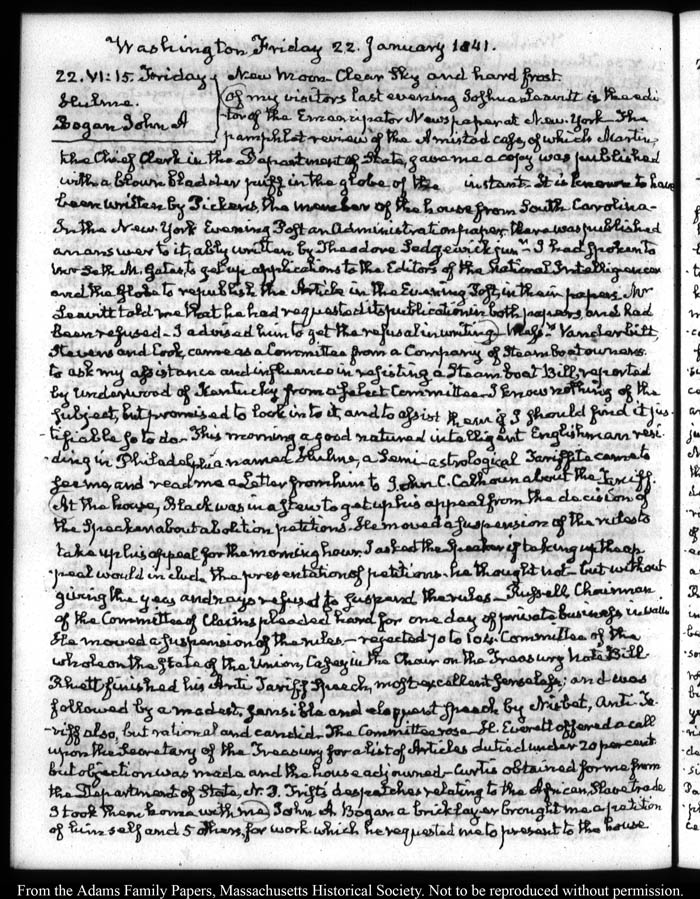 Washington Friday 22. January 1841.
22. VI:15. Friday New Moon Clear Sky and hard frost.
Hulme. Of my visitors last evening Joshua Leavitt is the edi-
Bogan John A tor of the Emancipator Newspaper at New-York. The
pamphlet review of the Amistad case, of which Martin,
the Chief Clerk in the Department of State, gave me a copy was published
with a blown bladder puff in the globe of the instant. It is known to have
been written by Pickens, the member of the house from South Carolina—
In the New-York Evening Post an Administration paper, there was published
an answer to it, ably written by Theodore Sedgewick junr.— I had spoken to
Mr Seth M. Gates, to get up applications to the Editors of the National Intelligencer
and the Globe to republish the Article in the Evening Post, in their papers. Mr
Leavitt told me that he had requested its publication in both papers, and had
been refused— I advised him to get the refusal in writing. Messrs. Vanderbilt,
Stevens and Cook, came as a Committee from a Company of Steam boat owners
to ask my assistance and influence in resisting a Steam boat Bill, reported
by Underwood of Kentucky from a select Committee. I know nothing of the
subject, but promised to look in to it, and to assist them if I should find it jus-
-tifiable so to do. This morning a good natured intelligent Englishman resi-
-ding in Philadelphia named Hulme, a semi-astrological Tariffite came to
see me, and read me a Letter from him to John C. Calhoun about the Tariff.
At the house, Black was in a stew to get up his appeal from the decision of
the Speaker about abolition petitions. He moved a suspension of the rules to
take up his appeal for the morning hour. I asked the Speaker if taking up the ap-
-peal would include the presentation of petitions. he thought not— but without
giving the yeas and nays refused to suspend the rules— Russell Chairman
of the Committee of Claims pleaded hard for one day of private business
He moved a suspension of the rules.— rejected 70 to 104. Committee of the
whole on the state of the Union, Casey in the Chair on the Treasury Note Bill
Rhett finished his Anti Tariff Speech, most excellent and was
followed by a modest, sensible and eloquent speech by Nisbet, Anti Ta-
-riff also, but rational and candid. The Committee rose— H. Everett offered a call
upon the Secretary of the Treasury for a list of Articles dutied under 20 per cent
but objection was made and the house adjourned— Curtis obtained for me from
the Department of State, N. P. Trist's despatches relating to the African Slave trade
I took them home with me. John A. Bogan a bricklayer brought me a petition
of himself and 5 others, for work which he requested me to present to the house
From the Adams Family Papers, Massachusetts Historical Society. Not to be reproduced without permission.